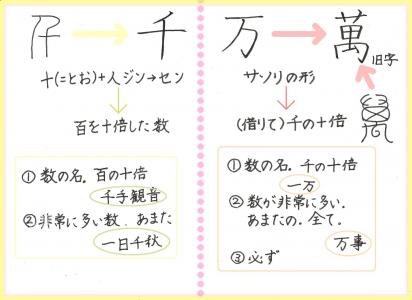 千
十(ことお)+人ジン→セン
百を十倍した数
① 数の名。百の十倍
千手観音
② 非常に多い数。あまた
一日千秋
万 萬 旧字
サソリの形
(借りて)千の十倍
① 数の名。千の十倍
一万
② 数が非常に多い。
あまたの。全て。
万事
③ 必ず